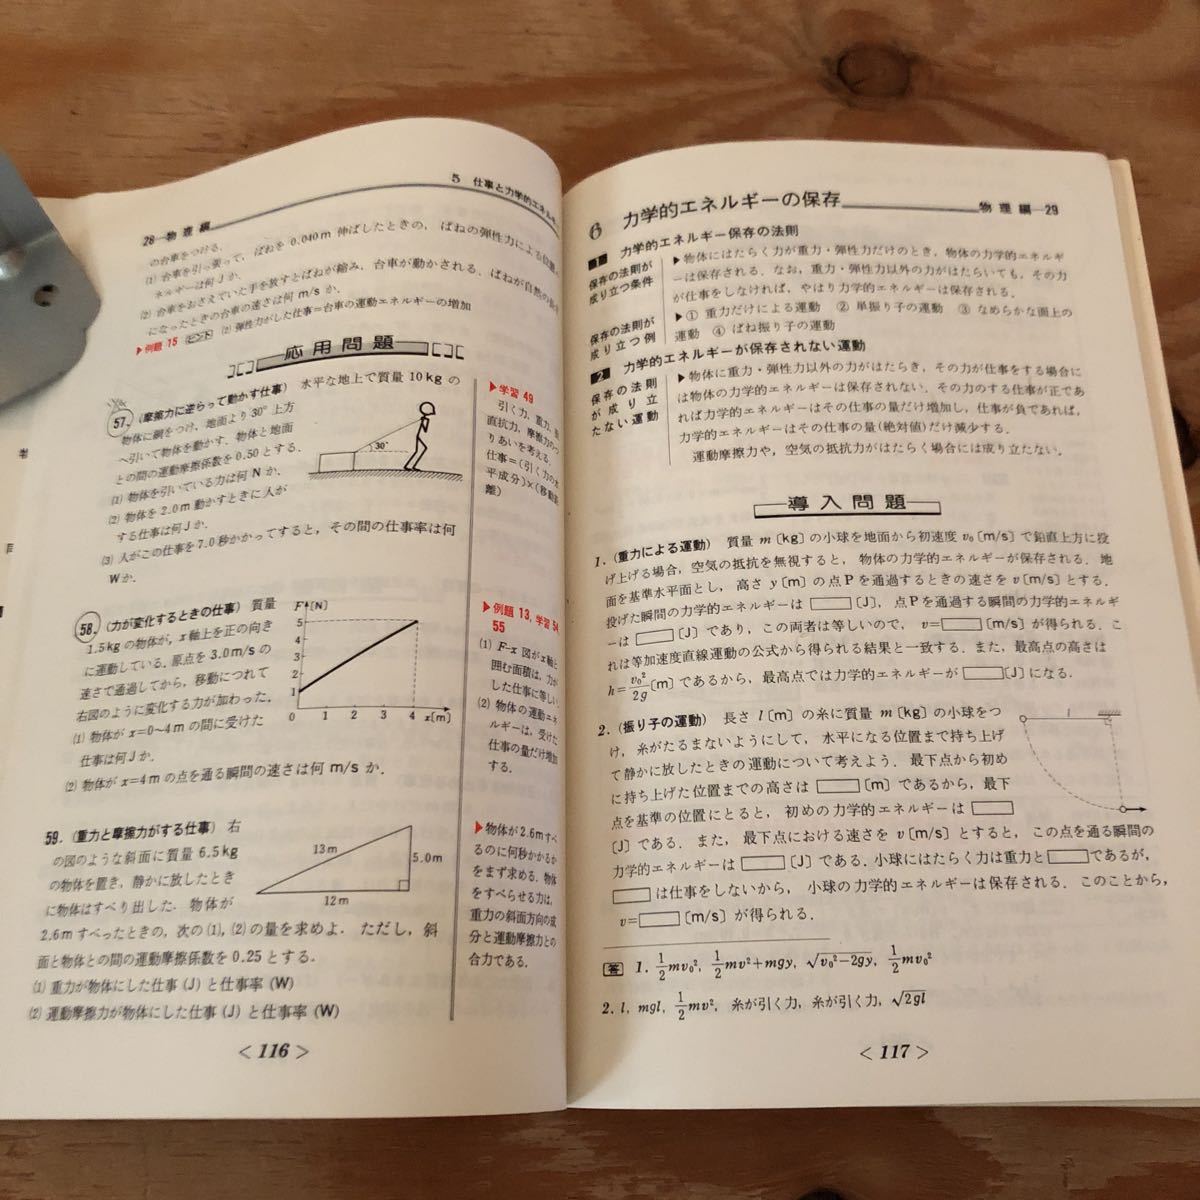 5 仕事と力学的エネルギ
28—物理編
の台車をつける.
(1) 台車を引っ張って，ばねを 0.040m 伸ばしたときの，ばねの弾性力による位置
ネルギーは何Jか.
(2) 台車をおさえていた手を放すとばねが縮み，台車が動かされる．ばねが自然の長
になったときの台車の速さは何 m/s か.
▶例題 15 ヒント (2) 弾性力がした仕事=台車の運動エネルギーの増加
応用問題
57. (摩擦力に逆らって動かす仕事) 水平な地上で質量 10kg の
物体に綱をつけ，地面より 30° 上方
へ引いて物体を動かす．物体と地面
との間の運動摩擦係数を 0.50 とする.
(1) 物体を引いている力は何 N か.
(2) 物体を 2.0m 動かすときに人が
する仕事は何Jか.
(3) 人がこの仕事を 7.0 秒かかってすると，その間の仕事率は何
Wか.
30°
▶学習 49
引く力，重力，垂
直抗力，摩擦力のつ
りあいを考える.
仕事=(引く力の水
平成分)×(移動距
離)
58. (力が変化するときの仕事) 質量
1.5kg の物体が，x 軸上を正の向き
に運動している．原点を 3.0m/s の
速さで通過してから，移動につれて
右図のように変化する力が加わった.
(1) 物体が x=0~4m の間に受けた
仕事は何Jか.
(2) 物体が x=4m の点を通る瞬間の速さは何 m/s か.
F [N]
5
4
3
2
1
0 1 2 3 4 x[m]
▶例題 13, 学習 54
55
(1) F-x 図がx軸と
囲む面積は，力が
した仕事に等しい
(2) 物体の運動エネ
ルギーは，受けた
仕事の量だけ増加
する.
59. (重力と摩擦力がする仕事) 右
の図のような斜面に質量 6.5kg
の物体を置き，静かに放したとき
に物体はすべり出した．物体が
2.6m すべったときの，次の(1), (2)の量を求めよ．ただし，斜
面と物体との間の運動摩擦係数を 0.25 とする.
(1) 重力が物体にした仕事 (J) と仕事率 (W)
(2) 運動摩擦力が物体にした仕事 (J) と仕事率 (W)
13m
5.0m
12m
▶物体が 2.6m すべ
るのに何秒かかるか
をまず求める．物体
をすべらせる力は,
重力の斜面方向の成
分と運動摩擦力との
合力である.
<116>
6 力学的エネルギーの保存 物理編—29
1 力学的エネルギー保存の法則
保存の法則が
成り立つ条件
▶物体にはたらく力が重力・弾性力だけのとき，物体の力学的エネルギ
ーは保存される．なお，重力・弾性力以外の力がはたらいても，その力
が仕事をしなければ，やはり力学的エネルギーは保存される.
保存の法則が
成り立つ例
▶① 重力だけによる運動 ② 単振り子の運動 ③ なめらかな面上の
運動 ④ ばね振り子の運動
2 力学的エネルギーが保存されない運動
保存の法則
が成り立
たない運動
▶物体に重力・弾性力以外の力がはたらき，その力が仕事をする場合に
は物体の力学的エネルギーは保存されない．その力のする仕事が正であ
れば力学的エネルギーはその仕事の量だけ増加し，仕事が負であれば,
力学的エネルギーはその仕事の量(絶対値)だけ減少する.
運動摩擦力や，空気の抵抗力がはたらく場合には成り立たない.
導入問題
1. (重力による運動) 質量 m [kg] の小球を地面から初速度 v₀ [m/s] で鉛直上方に投
げ上げる場合，空気の抵抗を無視すると，物体の力学的エネルギーが保存される．地
面を基準水平面とし，高さ y [m] の点Pを通過するときの速さを v [m/s] とする.
投げた瞬間の力学的エネルギーは □ [J]，点Pを通過する瞬間の力学的エネルギ
ーは □ [J] であり，この両者は等しいので，v=□ [m/s] が得られる．こ
れは等加速度直線運動の公式から得られる結果と一致する．また，最高点の高さは
h=v₀²/2g [m] であるから，最高点では力学的エネルギーが □ [J] になる.
2. (振り子の運動) 長さ l [m] の糸に質量 m [kg] の小球をつ
け，糸がたるまないようにして，水平になる位置まで持ち上げ
て静かに放したときの運動について考えよう．最下点から初め
に持ち上げた位置までの高さは □ [m] であるから，最下
点を基準の位置にとると，初めの力学的エネルギーは □
[J] である．また，最下点における速さを v [m/s] とすると，この点を通る瞬間の
力学的エネルギーは □ [J] である．小球にはたらく力は重力と □ であるが,
□ は仕事をしないから，小球の力学的エネルギーは保存される．このことから,
v=□ [m/s] が得られる.
l
答 1. 1/2 mv₀², 1/2 mv²+mgy, √v₀²−2gy, 1/2 mv₀²
2. l, mgl, 1/2 mv², 糸が引く力, 糸が引く力, √2gl
<117>